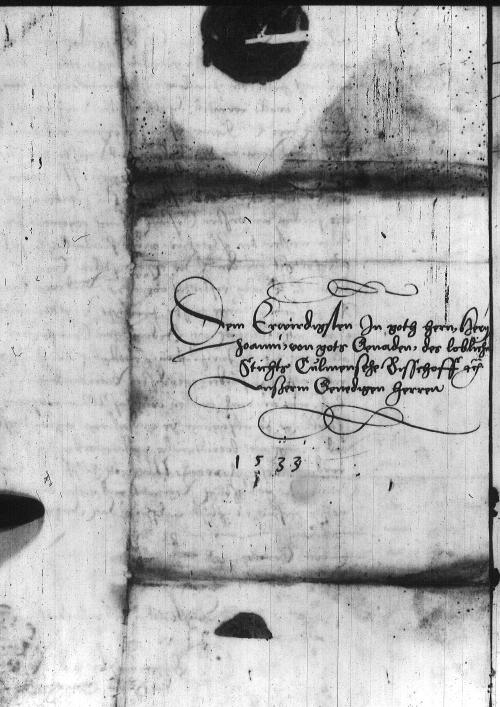 Dem Erwirdigsten In goth hern Hern
Joanni von gots Genaden des loblichen
Stiechts Culmensche Bisschoff etc
Unserm Genedigen herren
1533
1